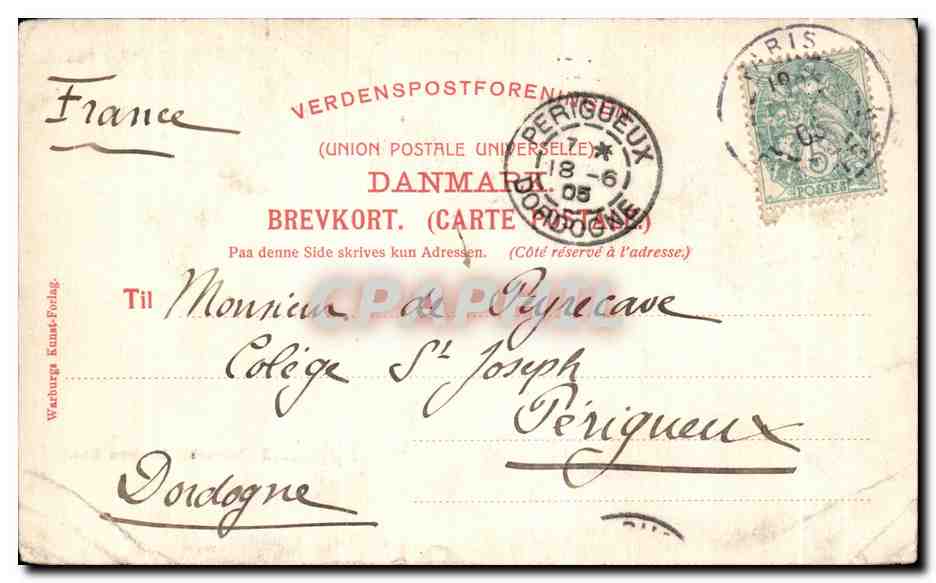 France
VERDENSPOSTFORENINGEN
(UNION POSTALE UNIVERSELLE)
DANMARK.
BREVKORT. (CARTE POSTALE.)
Paa denne Side skrives kun Adressen. (Côté réservé à l'adresse.)
PERIGUEUX
7 *
18 -6
05
DORDOGNE
PARIS
05
5
POSTES
Til Monsieur de Peyrecave
Colége St Joseph
Périgueux
Dordogne
Warburgs Kunst-Forlag.
CPAPHIL